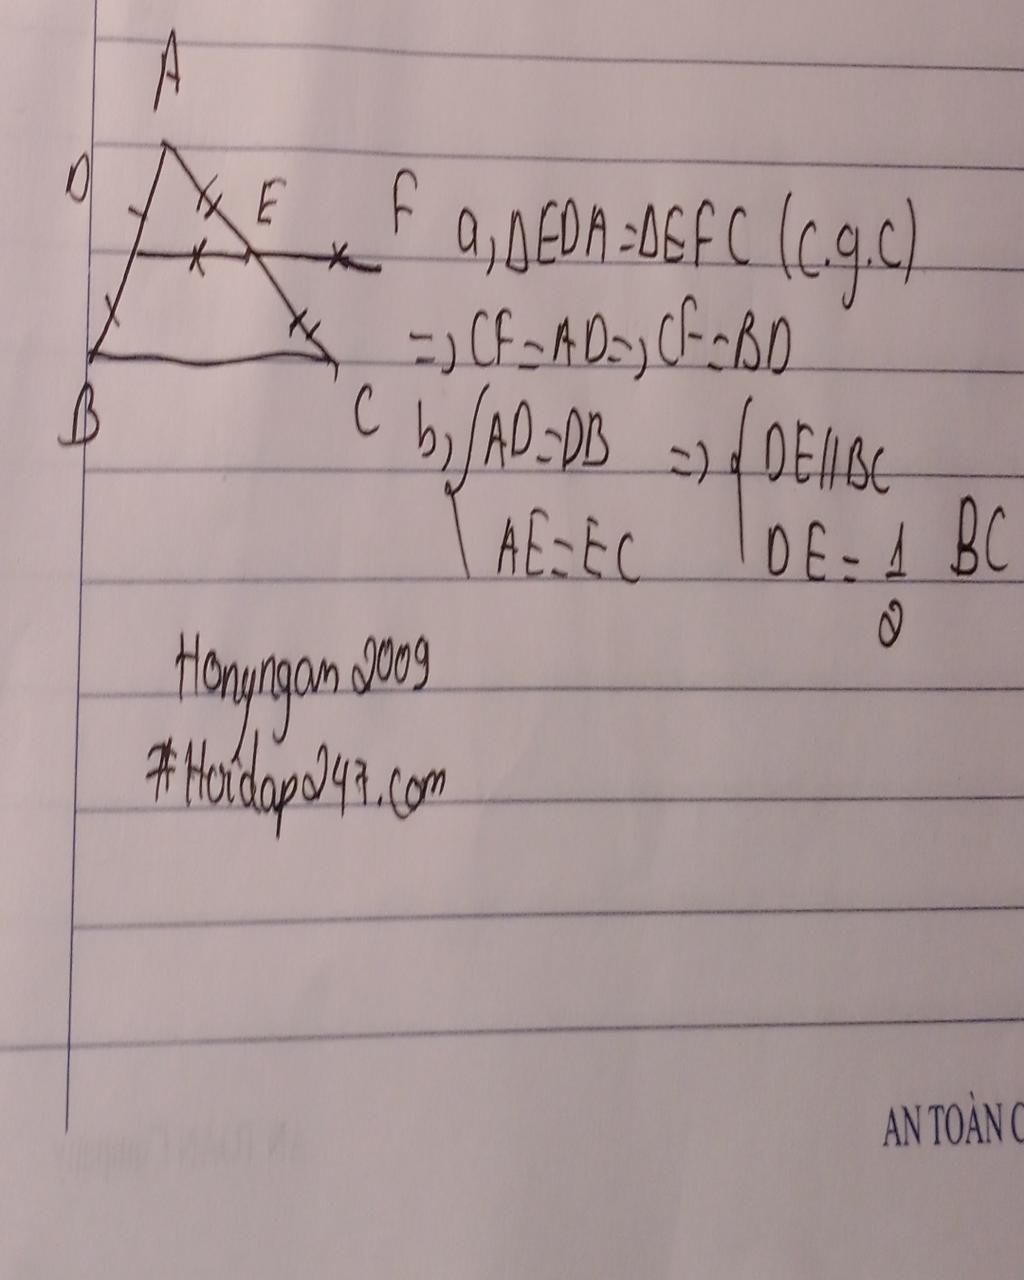 A
D
E
F
B
C
a, ΔEDA = ΔEFC (c.g.c)
=> CF = AD => CF = BD
b, { AD = DB => { DE // BC
AE = EC DE = 1/2 BC
Hongngan 2009
#Hoidap247.com
AN TOÀN C